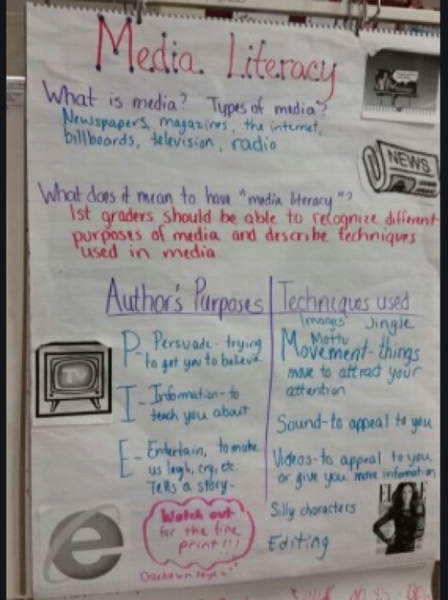 Media Literacy
What is media? Types of media?
Newspapers, magazines, the internet,
billboards, television, radio
NEWS
What does it mean to have "media literacy"?
1st graders should be able to recognize different
purposes of media and describe techniques
used in media.
Author's Purposes
P- Persuade- trying
to get you to believe
I- Information- to
teach you about
E- Entertain, to make
us laugh, cry, etc.
Tells a story.
Techniques used
Images Jingle
Motto
Movement- things
move to attract your
attention
Sound- to appeal to you
Videos- to appeal to you
or give you more information
Silly characters
Editing
TV
ELLE
Watch out
for the fine
print!!!